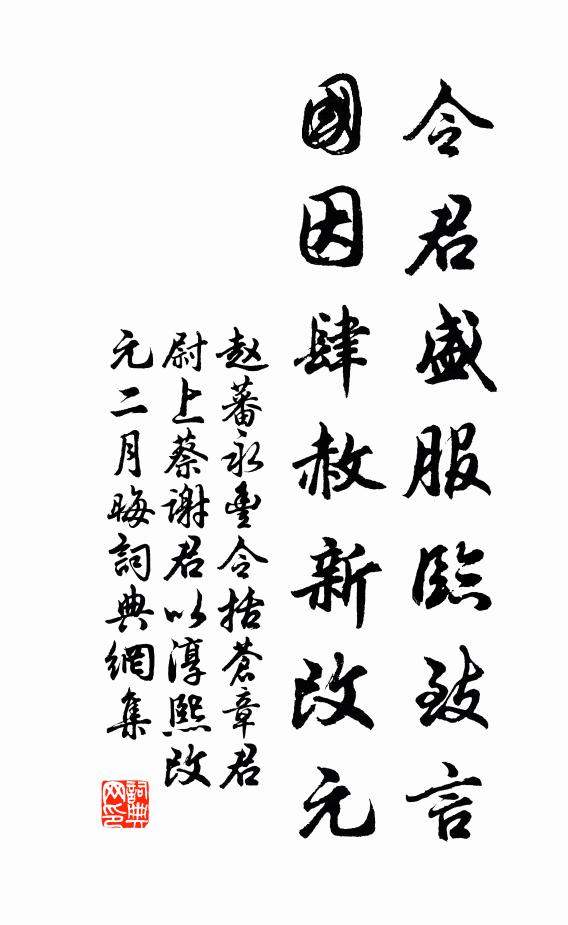 令君盛服臨致言
國因肆赦新改元
赵蕃永豐令括蒼章君
尉上蔡謝君以淳熙改
元二月晦詞典網集
詞典
网印